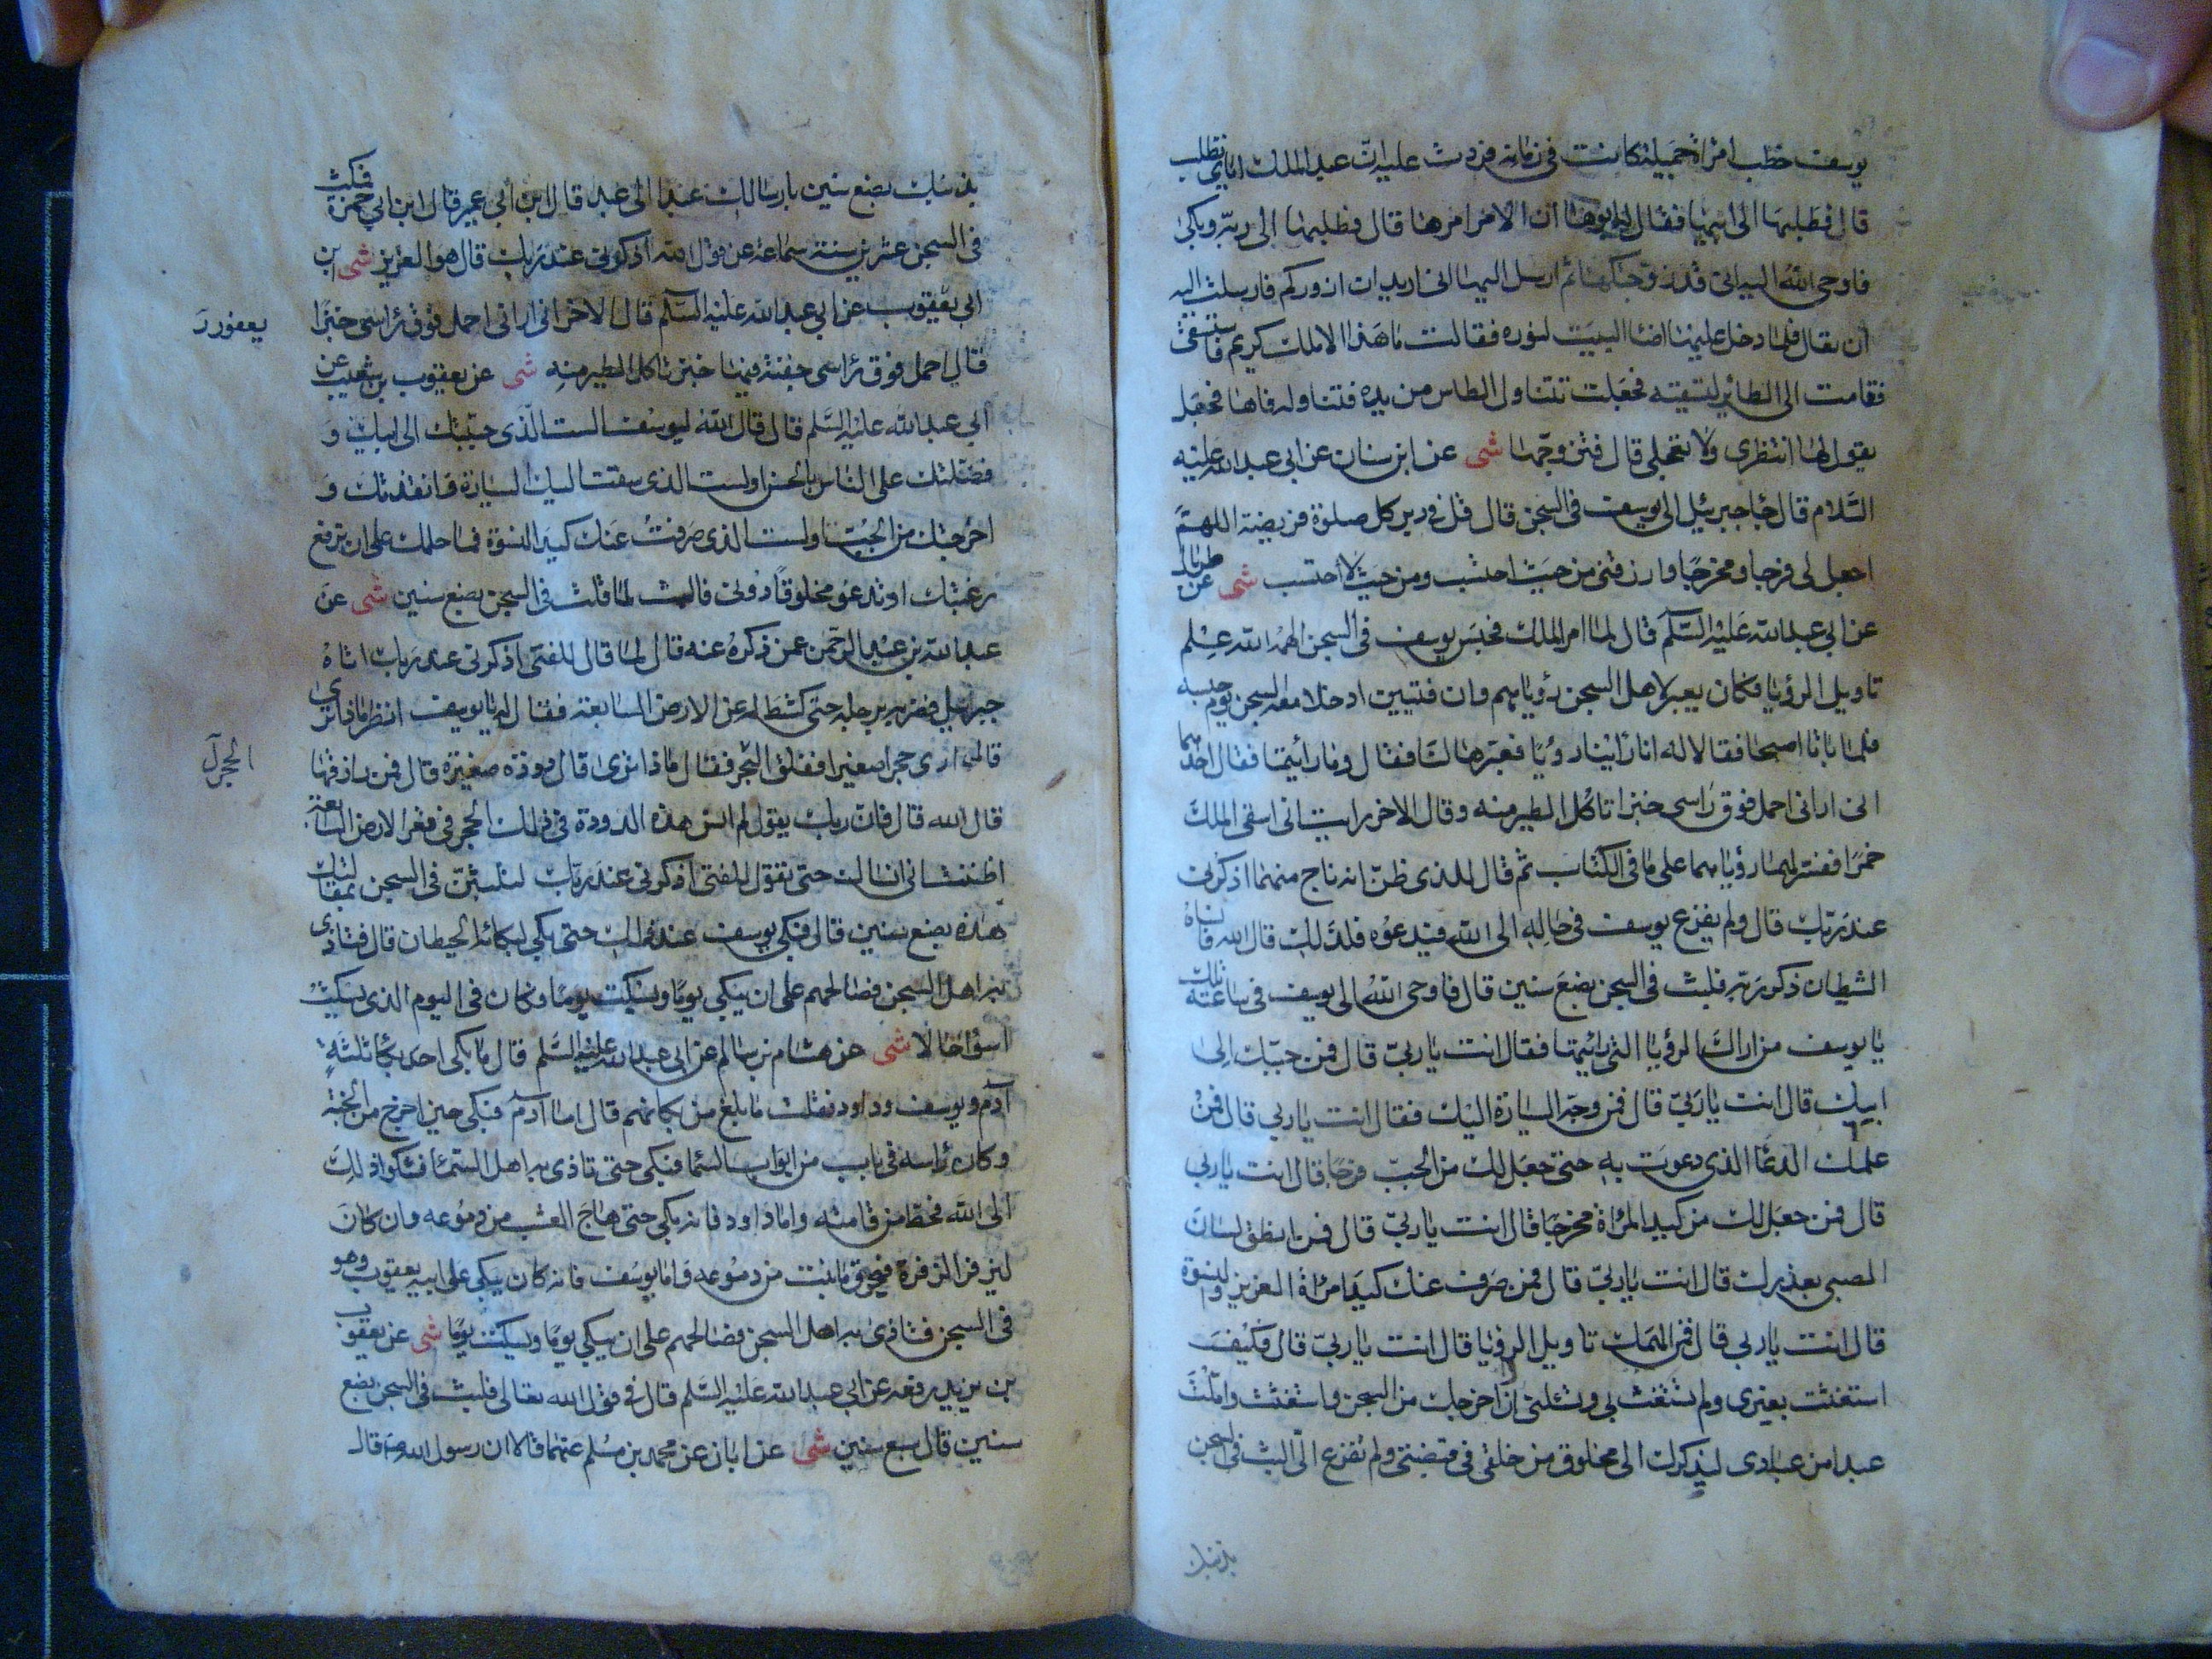 يوسف خطب امراة جميلة كانت في زمانه فردت عليه ان عبد الملك اياي تطلب
قال فطلبها الى ابيها فقال له ابوها ان الامر امرها قال فطلبها الى ربه وبكى
فاوحى الله اليه اني قد زوجتكها ثم ارسل اليها اني اريد ان ازوركم فارسلت اليه
ان تعال فلما دخل عليها اضاء البيت لنوره فقالت ما هذا الا ملك كريم فاستسقى
فقامت الى الطاس لتسقيه فجعلت تتناول الطاس من يده فتناوله فاها فجعل
يقول لها انتظري ولا تعجلي قال فتزوجها شى عن ابن سنان عن ابي عبد الله عليه
السلام قال جاء جبرئيل الى يوسف في السجن قال قل في دبر كل صلوة فريضة اللهم
اجعل لي فرجا ومخرجا وارزقني من حيث احتسب ومن حيث لا احتسب شى عن طربال
عن ابي عبد الله عليه السلم قال لما امر الملك فحبس يوسف في السجن الهمه الله علم
تاويل الرؤيا فكان يعبر لاهل السجن رؤياهم وان فتيين ادخلا معه السجن يوم حبسه
فلما باتا اصبحا فقالا له انا راينا رؤيا فعبرها لنا فقال وما رايتما فقال احدهما
اني اراني احمل فوق راسي خبزا تاكل الطير منه وقال الاخر رايت اني اسقي الملك
خمرا ففسر لهما رؤياهما على ما في الكتاب ثم قال للذي ظن انه ناج منهما اذكرني
عند ربك قال ولم يفزع يوسف في حاله الى الله فيدعوه فلذلك قال الله فانساه
الشيطان ذكر ربه فلبث في السجن بضع سنين قال فاوحى الله الى يوسف في ساعته تلك
يا يوسف من اراك الرؤيا التي رايتها فقال انت يا ربي قال فمن حببك الى
ابيك قال انت يا ربي قال فمن وجه السيارة اليك فقال انت يا ربي قال فمن
علمك الدعاء الذي دعوت به حتى جعل لك من الجب فرجا قال انت يا ربي
قال فمن جعل لك من كيد المراة مخرجا قال انت يا ربي قال فمن انطق لسان
الصبي بعذرك قال انت يا ربي قال فمن صرف عنك كيد امراة العزيز والنسوة
قال انت يا ربي قال فمن الهمك تاويل الرؤيا قال انت يا ربي قال فكيف
استغثت بغيري ولم تستغث بي وتسئلني ان اخرجك من السجن واستغثت واملت
عبدا من عبادي ليذكرك الى مخلوق من خلقي في قبضتي ولم تفزع الي البث في السجن
بذنبك
بذنبك بضع سنين بارسالك عبدا الى عبد قال ابن ابي عمير قال ابن ابي حمزة فمكث
في السجن عشرين سنة سماعة عن قول الله اذكرني عند ربك قال هو العزيز شى ابن
ابي يعقوب عن ابي عبد الله عليه السلم قال الاخر اني اراني احمل فوق راسي خبزا
يعفور
قال احمل فوق راسي جفنة فيها خبز تاكل الطير منه شى عن يعقوب بن شعيب عن
ابي عبد الله عليه السلم قال قال الله ليوسف الست الذي حببتك الى ابيك و
فضلتك على الناس بالحسن اولست الذي سقت اليك السيارة فانقذتك و
اخرجتك من الجب اولست الذي صرفت عنك كيد النسوة فما حملك على ان ترفع
رغبتك او تدعو مخلوقا دوني فالبث لما قلت في السجن بضع سنين شى عن
عبد الله بن عبد الرحمن عمن ذكره عنه قال لما قال للفتى اذكرني عند ربك اتاه
جبرئيل فضربه برجله حتى كشط له عن الارض السابعة فقال له يا يوسف انظر ماذا ترى
قال ارى حجرا صغيرا ففلق الحجر فقال ماذا ترى قال دودة صغيرة قال فمن رازقها
الحجر
قال الله قال فان ربك يقول لم انس هذه الدودة في ذلك الحجر في قعر الارض السابعة
اظننت اني انساك حتى تقول للفتى اذكرني عند ربك لتلبثن في السجن بمقالتك
هذه بضع سنين قال فبكى يوسف عند ذلك حتى بكى لبكائه الحيطان قال فتاذى
به اهل السجن فصالحهم على ان يبكي يوما ويسكت يوما وكان في اليوم الذي يسكت
اسوا حالا شى عن هشام بن سالم عن ابي عبد الله عليه السلم قال ما بكى احد بكاء ثلثة
آدم ويوسف وداود فقلت ما بلغ من بكائهم قال اما آدم فبكى حين اخرج من الجنة
وكان راسه في باب من ابواب السماء فبكى حتى تاذى به اهل السماء فشكوا ذلك
الى الله فحط من قامته واما داود فانه بكى حتى هاج العشب من دموعه وان كان
ليزفر الزفرة فيحرق ما نبت من دموعه واما يوسف فانه كان يبكي على ابيه يعقوب وهو
في السجن فتاذى به اهل السجن فصالحهم على ان يبكي يوما ويسكت يوما شى عن يعقوب
بن يزيد رفعه عن ابي عبد الله عليه السلم قال في قول الله تعالى فلبث في السجن بضع
سنين قال سبع سنين شى عن ابان عن محمد بن مسلم عنهما قالا ان رسول الله ص قال